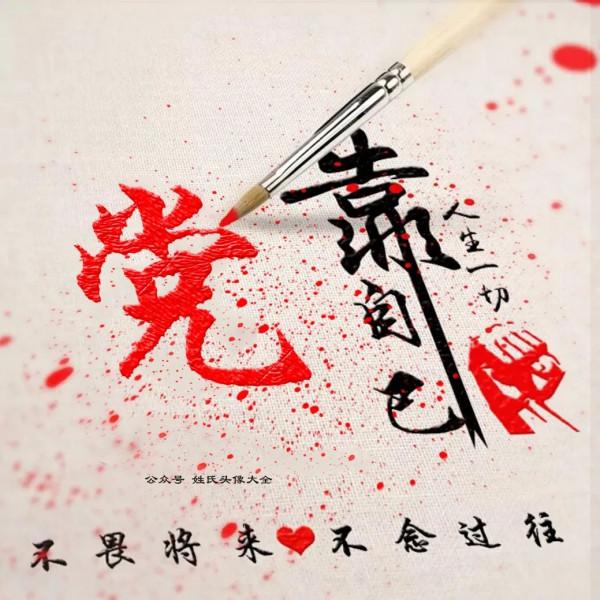 党
靠自己
人生一切
公众号 姓氏头像大全
不畏将来❤不念过往